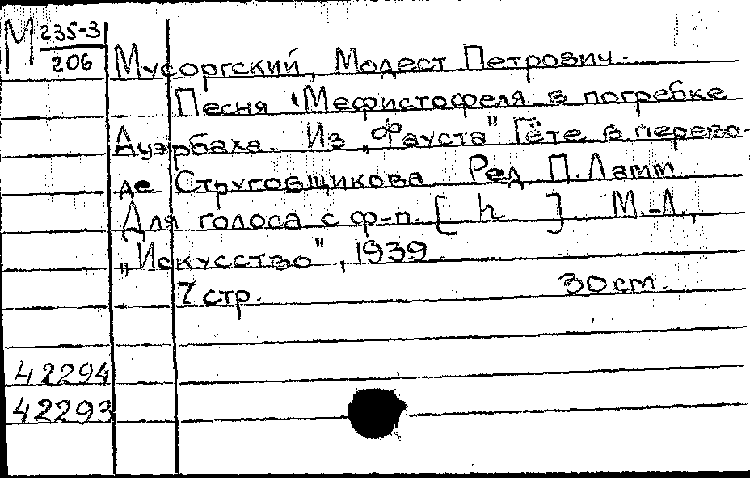 М 235-3
206
Мусоргский, Модест Петрович.
Песня Мефистофеля в погребке
Ауэрбаха. Из „Фауста" Гёте в перево-
де Струговщикова Ред П. Ламм
Для голоса с ф-п. [ h ] М.-Л.,
„Искусство", 1939.
7 стр. 30 cm.
42294
42293